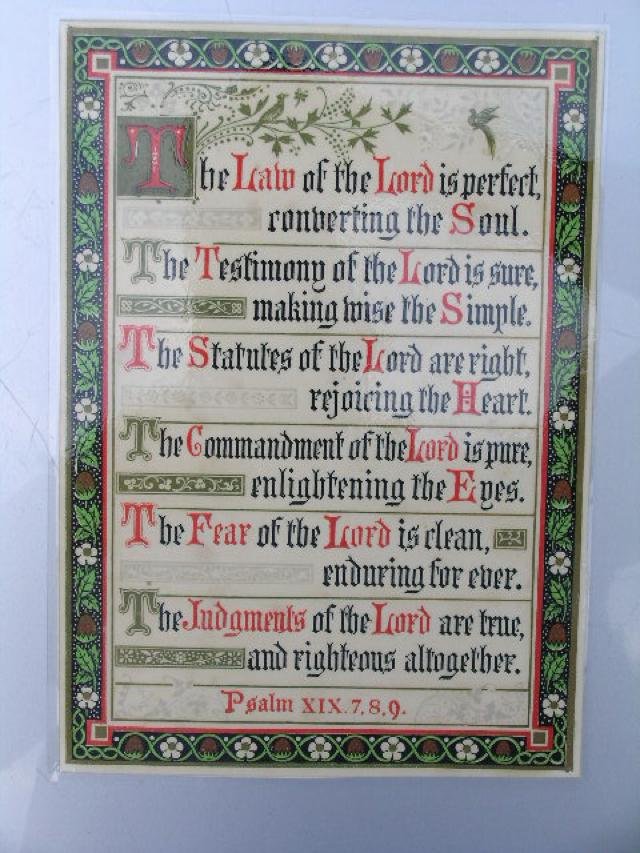 The Law of the Lord is perfect,
converting the Soul.
The Testimony of the Lord is sure,
making wise the Simple.
The Statutes of the Lord are right,
rejoicing the Heart.
The Commandment of the Lord is pure,
enlightening the Eyes.
The Fear of the Lord is clean,
enduring for ever.
The Judgments of the Lord are true,
and righteous altogether.
Psalm XIX. 7, 8, 9.